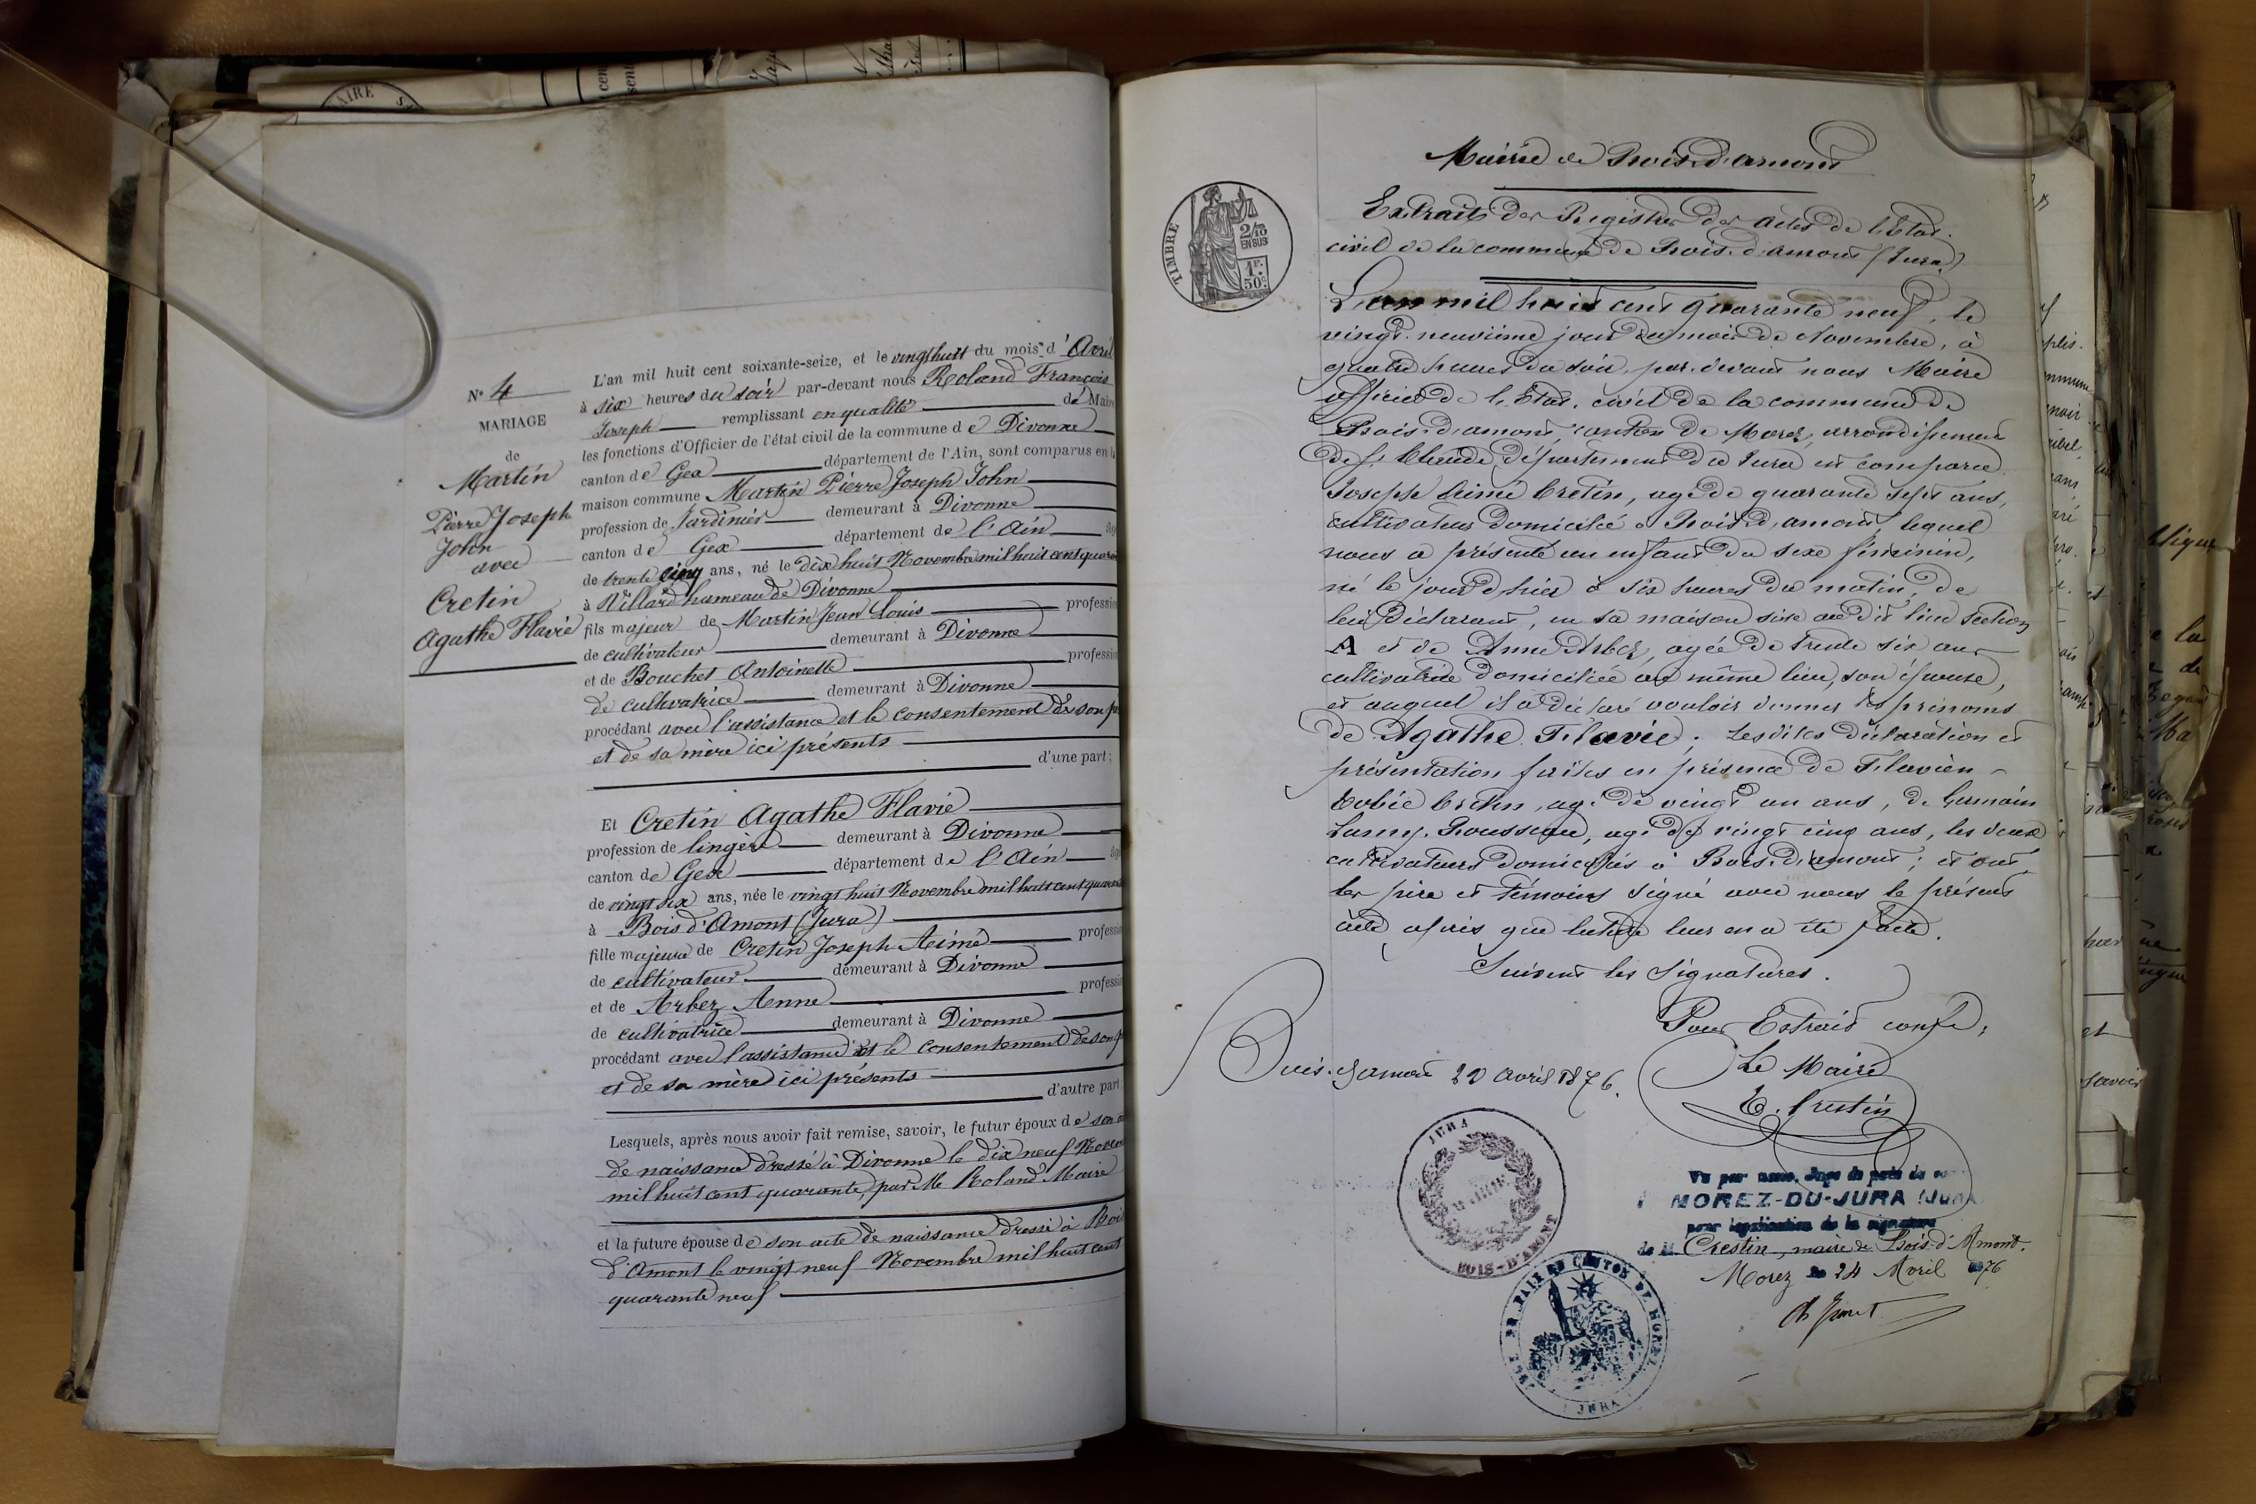 N° 4
MARIAGE
de
Martin
Pierre Joseph
John
avec
Cretin
Agathe Flavie
L'an mil huit cent soixante-seize, et le vingt huit du mois d'Avril
à six heures du soir par-devant nous Roland François
Joseph remplissant en qualité de Maire
les fonctions d'Officier de l'état civil de la commune de Divonne
canton de Gex département de l'Ain, sont comparus en la
maison commune Martin Pierre Joseph John
profession de Jardinier demeurant à Divonne
canton de Gex département de l'Ain
de trente cinq ans, né le dix huit Novembre mil huit cent
à Villard hameau de Divonne
fils majeur de Martin Jean Louis profession
de cultivateur demeurant à Divonne
et de Bouchet Antoinette profession
de cultivatrice demeurant à Divonne
procédant avec l'assistance et le consentement de son
et de sa mère ici présents
d'une part;
Et Cretin Agathe Flavie
profession de lingère demeurant à Divonne
canton de Gex département de l'Ain
de vingt six ans, née le vingt huit Novembre mil huit cent
à Bois d'Amont (Jura)
fille majeure de Cretin Joseph Aimé profession
de cultivateur demeurant à Divonne
et de Arbez Anne profession
de cultivatrice demeurant à Divonne
procédant avec l'assistance et le consentement de son
et de sa mère ici présents
d'autre part
Lesquels, après nous avoir fait remise, savoir, le futur époux de son
de naissance dressé à Divonne le dix neuf
mil huit cent quarante, par Me Roland Maire
et la future épouse de son acte de naissance dressé à Bois
d'Amont le vingt neuf Novembre mil huit cent
quarante neuf
Mairie de Bois-d'amont
TIMBRE
2/10
EN SUS
1F.
50c
Extrait des Registres des actes de l'Etat.
civil de la commune de Bois-d'amont (Jura)
L'an mil huit cent quarante neuf, le
vingt-neuvième jour du mois de Novembre, à
quatre heures du soir, par-devant nous Maire
officier de l'Etat-civil de la commune de
Bois-d'amont, canton de Morez, arrondissement
de St Claude, département du Jura est comparu
Joseph Aimé Cretin, agé de quarante sept ans,
cultivateur domicilié à Bois-d'amont, lequel
nous a présenté un enfant du sexe féminin,
né le jour d'hier à six heures du matin, de
lui déclarant, en sa maison sise au dit lieu section
A et de Anne Arbez, agée de trente six ans
cultivatrice domiciliée au même lieu, son épouse,
et auquel il a déclaré vouloir donner les prénoms
de Agathe Flavie; lesdites déclaration et
présentation faites en présence de Flavien
Tobie Cretin, agé de vingt un ans, de Germain
Lamy-Rousseau, agé de vingt cinq ans, les deux
cultivateurs domiciliés à Bois-d'amont; et ont
les père et témoins signé avec nous le présent
acte après que lecture leur en a été faite.
Suivent les signatures.
Pour Extrait conf.
Bois-d'amont 20 avril 1876.
Le Maire
JURA
MAIRIE
BOIS-D'AMONT
Vu par nous, Juge de paix du
MOREZ-DU-JURA (JURA
pour légalisation de la signature
de M. Crestin, maire de Bois-d'Amont.
Morez le 24 Avril 1876
PAIX DU CANTON DE MOREZ
JURA